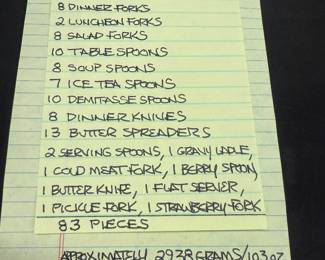 8 DINNER FORKS
2 LUNCHEON FORKS
8 SALAD FORKS
10 TABLE SPOONS
8 SOUP SPOONS
7 ICE TEA SPOONS
10 DEMITASSE SPOONS
8 DINNER KNIVES
13 BUTTER SPREADERS
2 SERVING SPOONS, 1 GRAVY LADLE,
1 COLD MEAT FORK, 1 BERRY SPOON,
1 BUTTER KNIFE, 1 FLAT SERVER,
1 PICKLE FORK, 1 STRAWBERRY FORK
83 PIECES
APROXIMATELY 2938 GRAMS/103 OZ